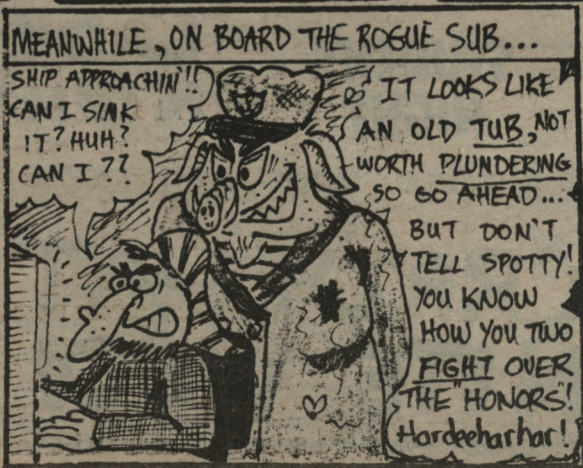 MEANWHILE, ON BOARD THE ROGUE SUB...
SHIP APPROACHIN'!!
CAN I SINK
IT? HUH?
CAN I??
IT LOOKS LIKE
AN OLD TUB, NOT
WORTH PLUNDERING
SO GO AHEAD...
BUT DON'T
TELL SPOTTY!
YOU KNOW
HOW YOU TWO
FIGHT OVER
THE "HONORS"!
Hardeeharhar!